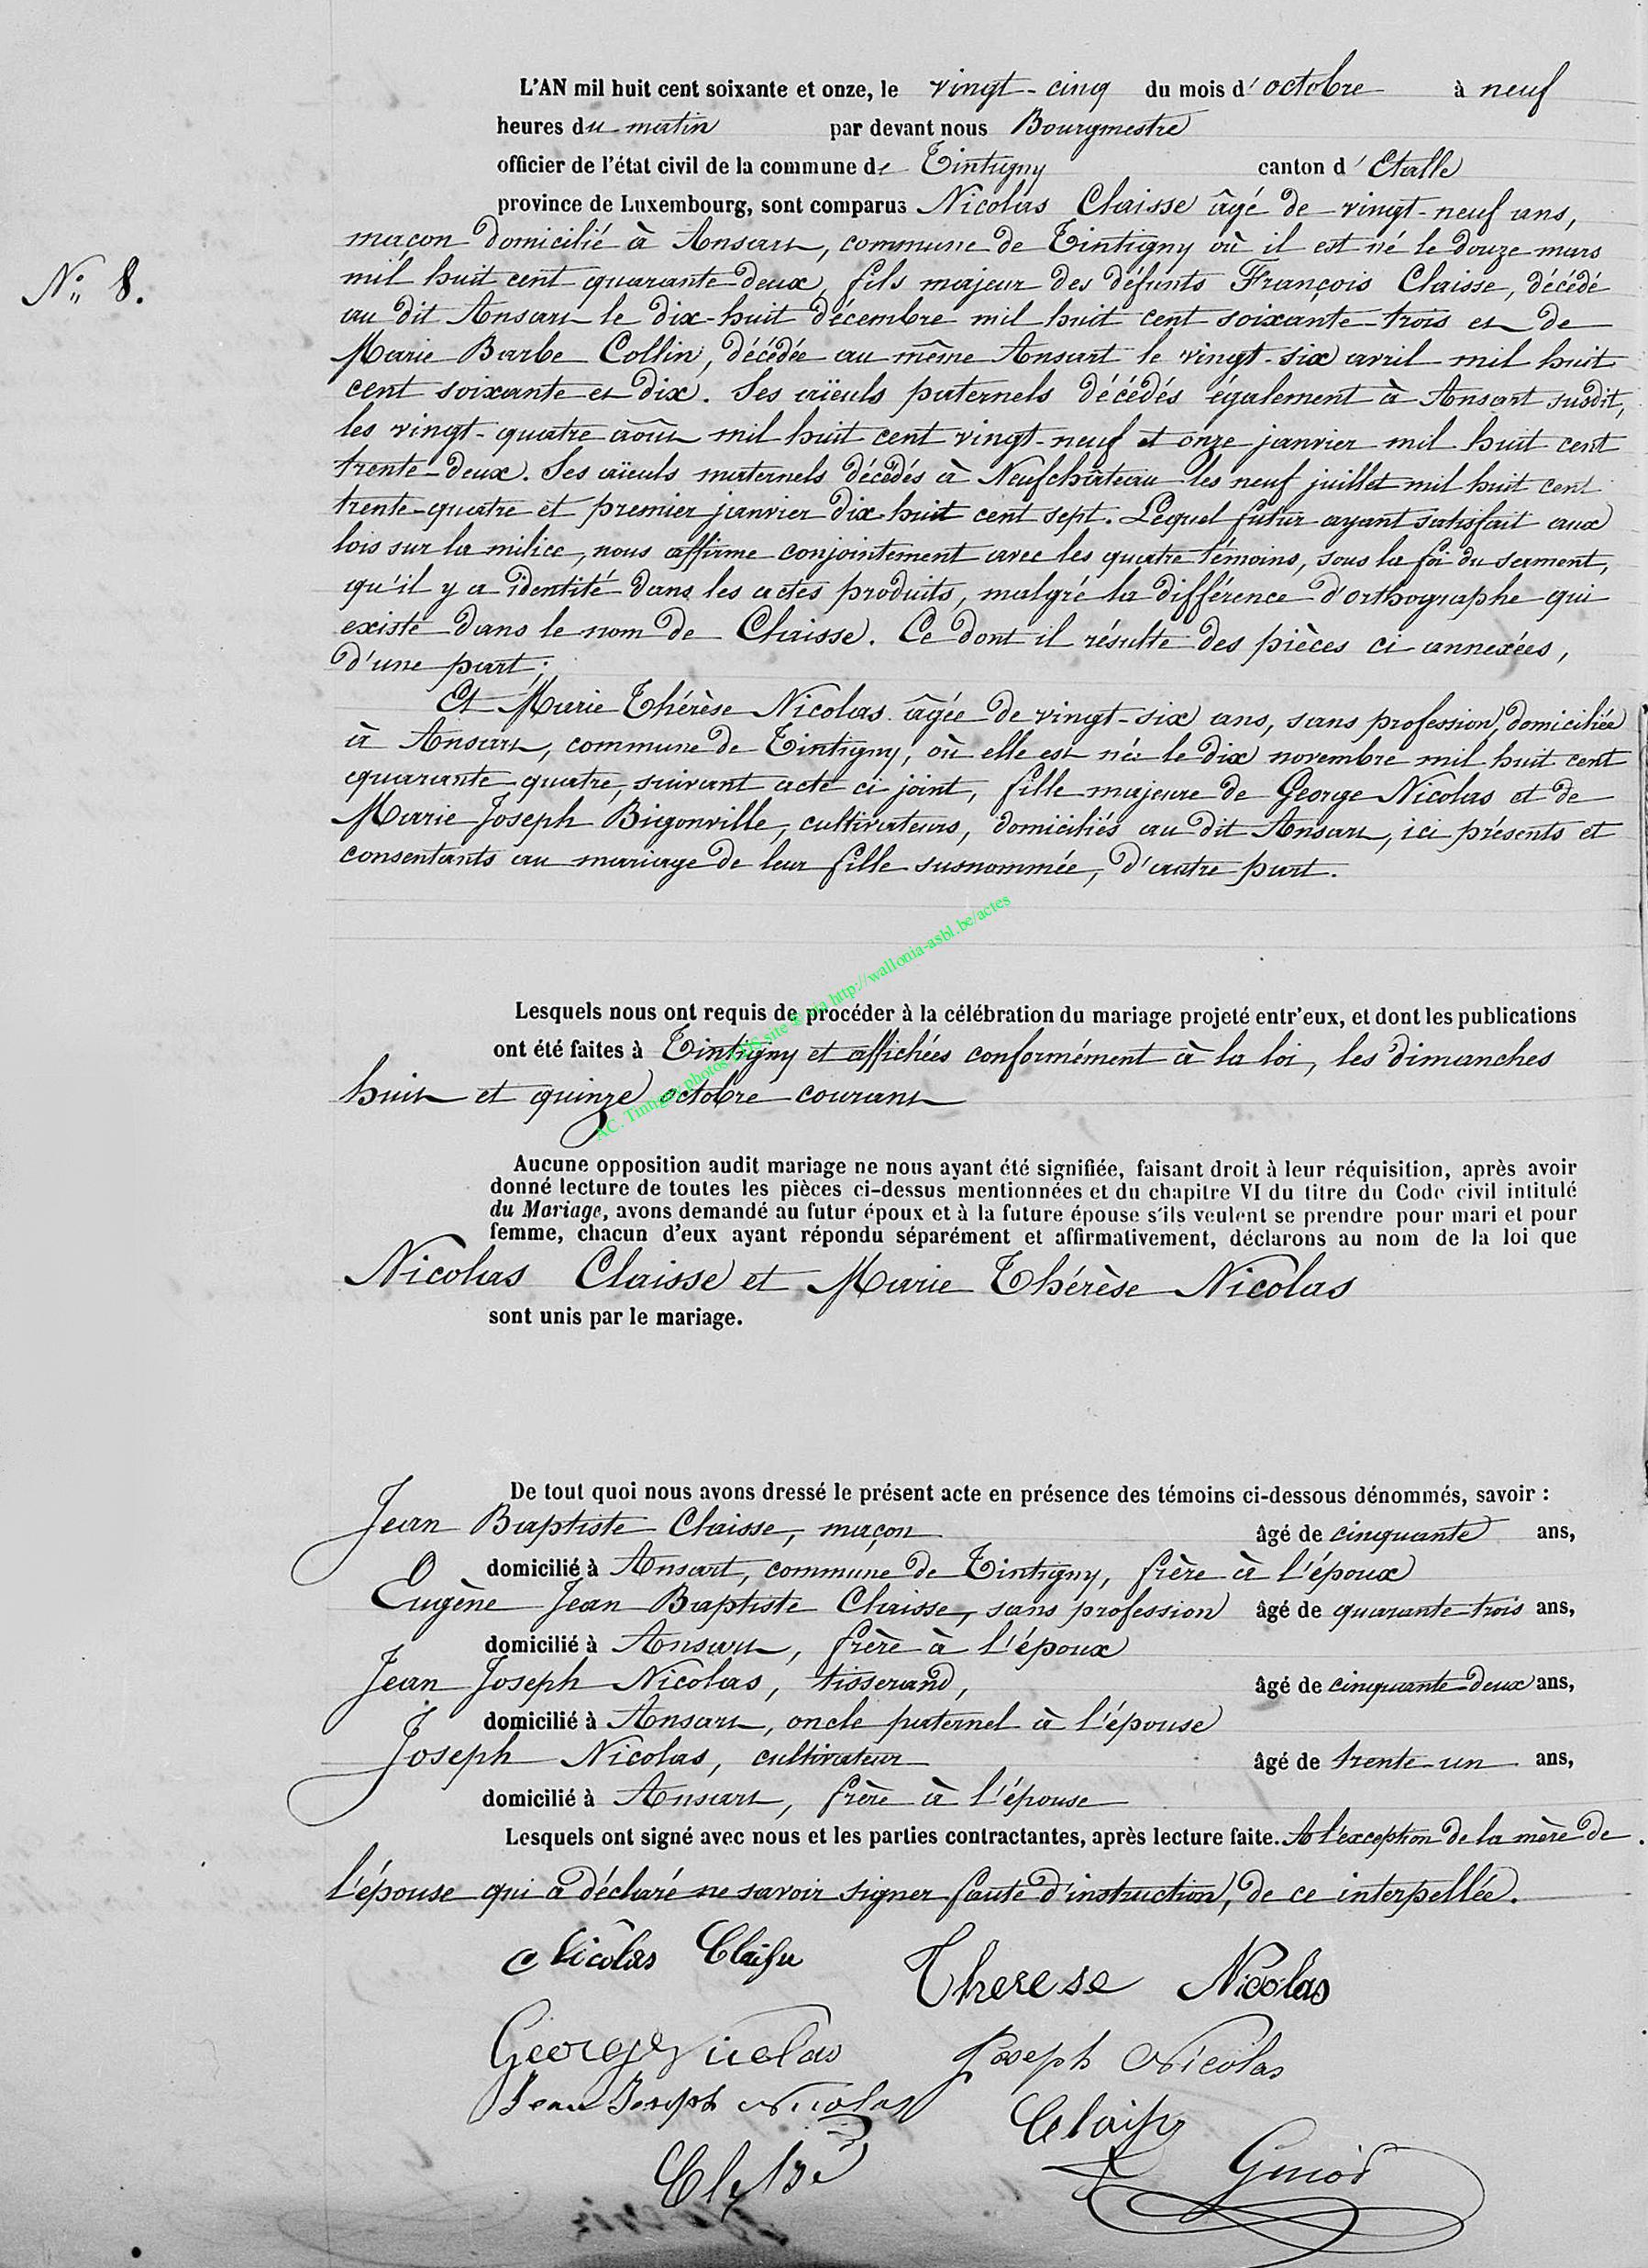 L'AN mil huit cent soixante et onze, le vingt-cinq du mois d'octobre à neuf
heures du matin par devant nous Bourgmestre
officier de l'état civil de la commune de Tintigny canton d'Etalle
province de Luxembourg, sont comparus Nicolas Claisse âgé de vingt-neuf ans,
maçon domicilié à Ansart, commune de Tintigny où il est né le douze mars
N° 8.
mil huit cent quarante-deux, fils majeur des défunts François Claisse, décédé
au dit Ansart le dix-huit décembre mil huit cent soixante-trois et de
Marie Barbe Collin, décédée au même Ansart le vingt-six avril mil huit
cent soixante et dix. Ses aïeuls paternels décédés également à Ansart susdit,
les vingt-quatre août mil huit cent vingt-neuf et onze janvier mil huit cent
trente-deux. Ses aïeuls maternels décédés à Neufchâteau les neuf juillet mil huit cent
trente-quatre et premier janvier dix-huit cent sept. Lequel futur ayant satisfait aux
lois sur la milice, nous affirme conjointement avec les quatre témoins, sous la foi du serment,
qu'il y a identité dans les actes produits, malgré la différence d'orthographe qui
existe dans le nom de Claisse. Ce dont il résulte des pièces ci annexées,
d'une part;
Et Marie Thérèse Nicolas âgée de vingt-six ans, sans profession, domiciliée
à Ansart, commune de Tintigny, où elle est née le dix novembre mil huit cent
quarante quatre, suivant acte ci joint, fille majeure de George Nicolas et de
Marie Joseph Bigonville, cultivateurs, domiciliés au dit Ansart, ici présents et
consentants au mariage de leur fille susnommée, d'autre part.
AC. Tintigny photos LDS site via http://wallonia-asbl.be/actes
Lesquels nous ont requis de procéder à la célébration du mariage projeté entr'eux, et dont les publications
ont été faites à Tintigny et affichées conformément à la loi, les dimanches
huit et quinze octobre courant
Aucune opposition audit mariage ne nous ayant été signifiée, faisant droit à leur réquisition, après avoir
donné lecture de toutes les pièces ci-dessus mentionnées et du chapitre VI du titre du Code civil intitulé
du Mariage, avons demandé au futur époux et à la future épouse s'ils veulent se prendre pour mari et pour
femme, chacun d'eux ayant répondu séparément et affirmativement, déclarons au nom de la loi que
Nicolas Claisse et Marie Thérèse Nicolas
sont unis par le mariage.
De tout quoi nous avons dressé le présent acte en présence des témoins ci-dessous dénommés, savoir :
Jean Baptiste Claisse, maçon âgé de cinquante ans,
domicilié à Ansart, commune de Tintigny, frère à l'époux
Eugène Jean Baptiste Claisse, sans profession âgé de quarante-trois ans,
domicilié à Ansart, frère à l'époux
Jean Joseph Nicolas, tisserand, âgé de cinquante-deux ans,
domicilié à Ansart, oncle paternel à l'épouse
Joseph Nicolas, cultivateur âgé de trente-un ans,
domicilié à Ansart, frère à l'épouse
Lesquels ont signé avec nous et les parties contractantes, après lecture faite. A l'exception de la mère de
l'épouse qui a déclaré ne savoir signer faute d'instruction, de ce interpellée.
Nicolas Claisse Therese Nicolas
George Nicolas Joseph Nicolas
Jean Joseph Nicolas Claisse